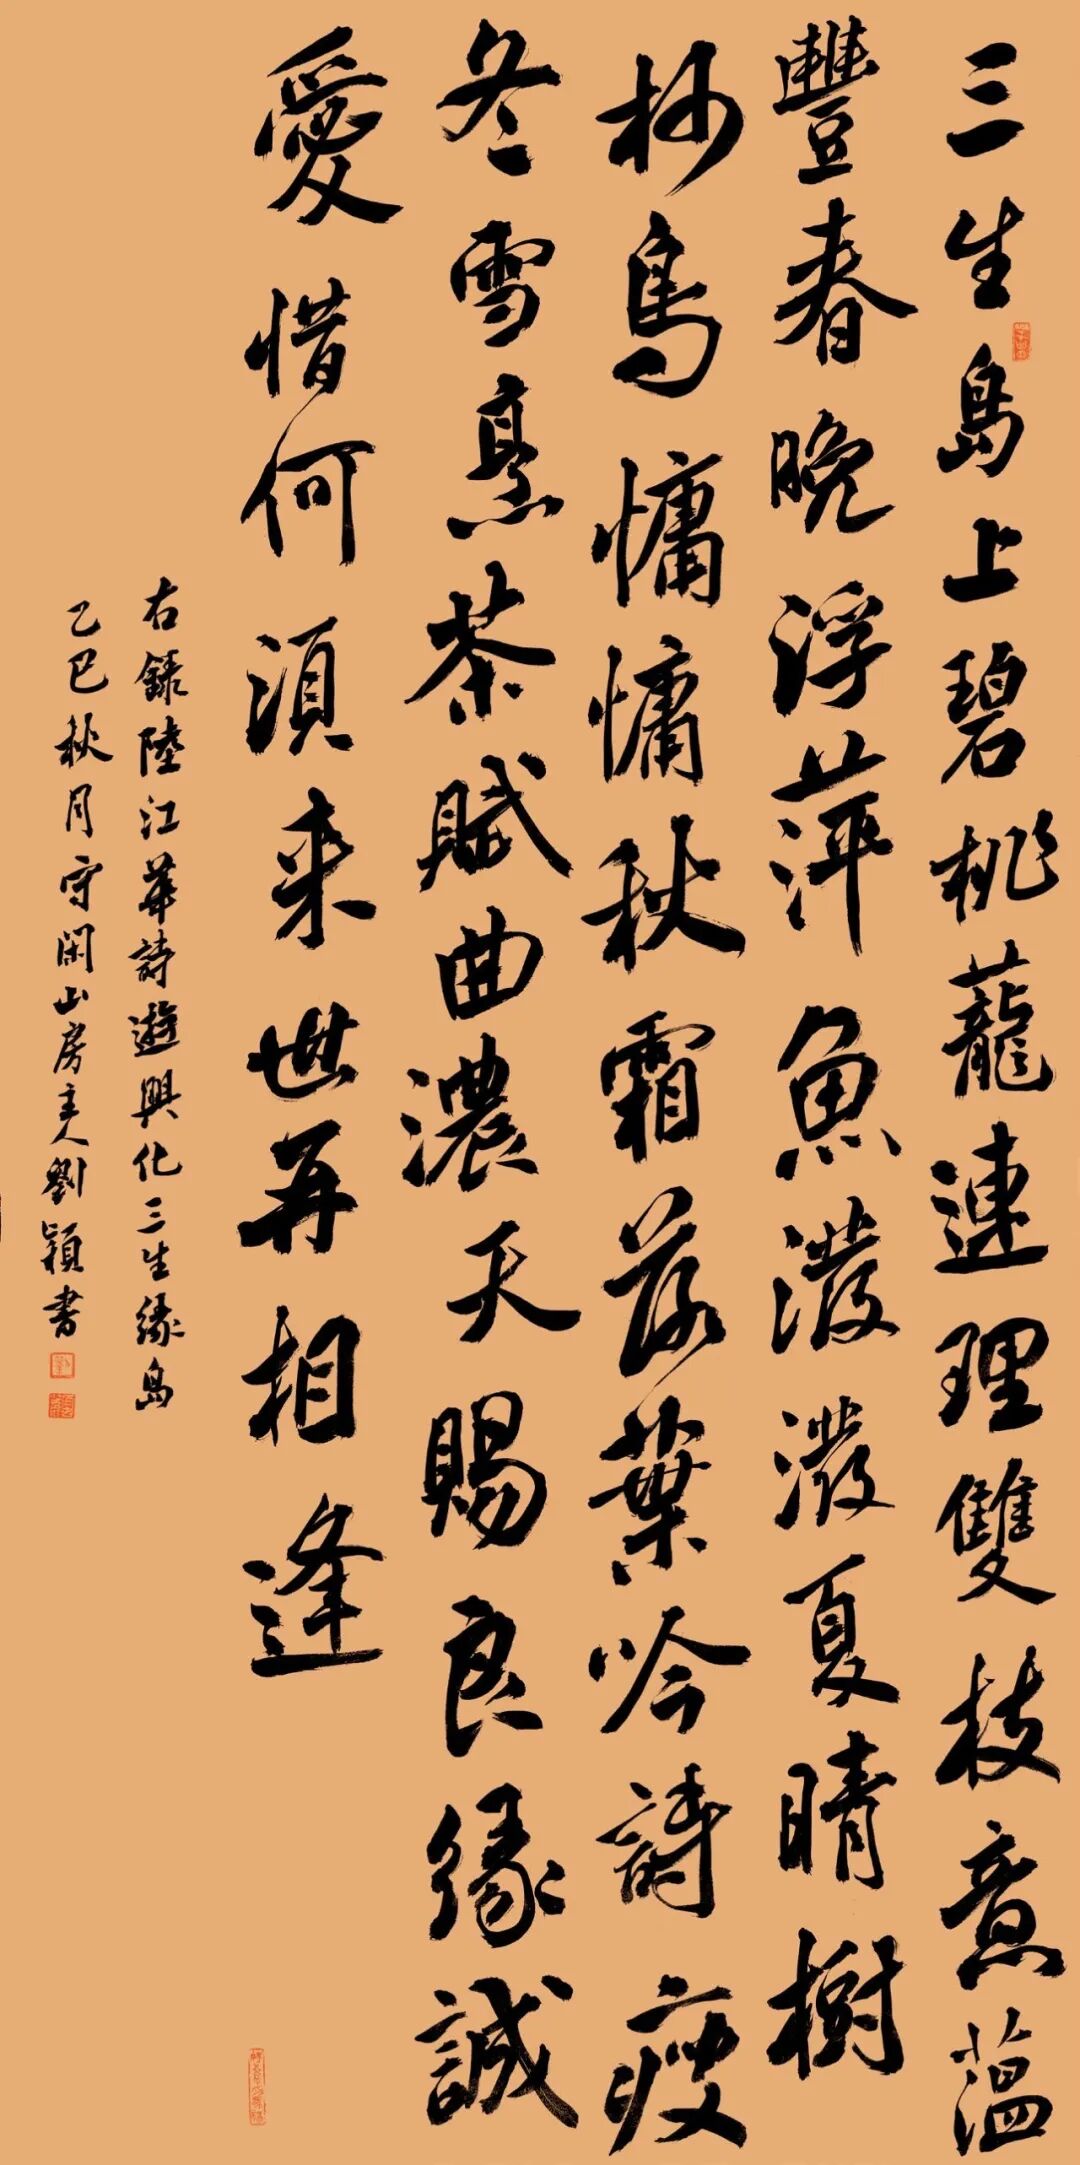 三生島上碧桃蘢連理雙枝意薀
豐春晚浮萍魚潑潑夏晴樹
杪鳥慵慵秋霜落葉吟詩瘦
冬雪烹茶賦曲濃天賜良緣誠
愛惜何須来世再相逢
右錄陸江華詩遊興化三生緣島
乙巳秋月守閑山房主人劉穎書